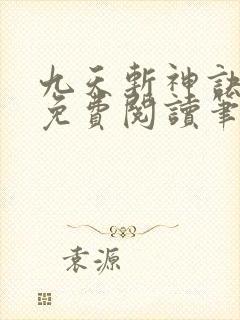 九天斬神訣
免費閱讀筆
袁源